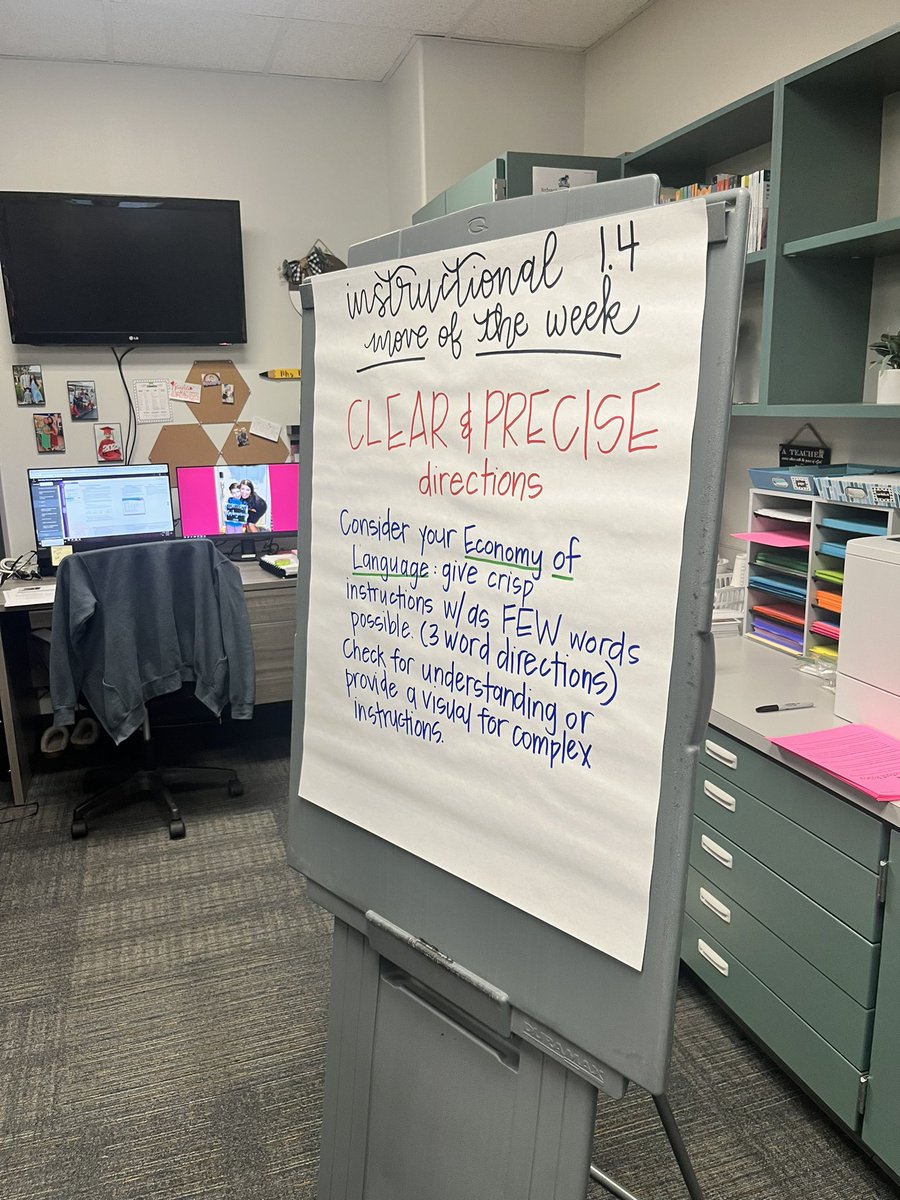 instructional 1.4
move of the week
CLEAR & PRECISE
directions
Consider your Economy of
Language: give crisp
instructions w/as FEW words
possible. (3 word directions)
Check for understanding or
provide a visual for complex
instructions.
LG
A TEACHER